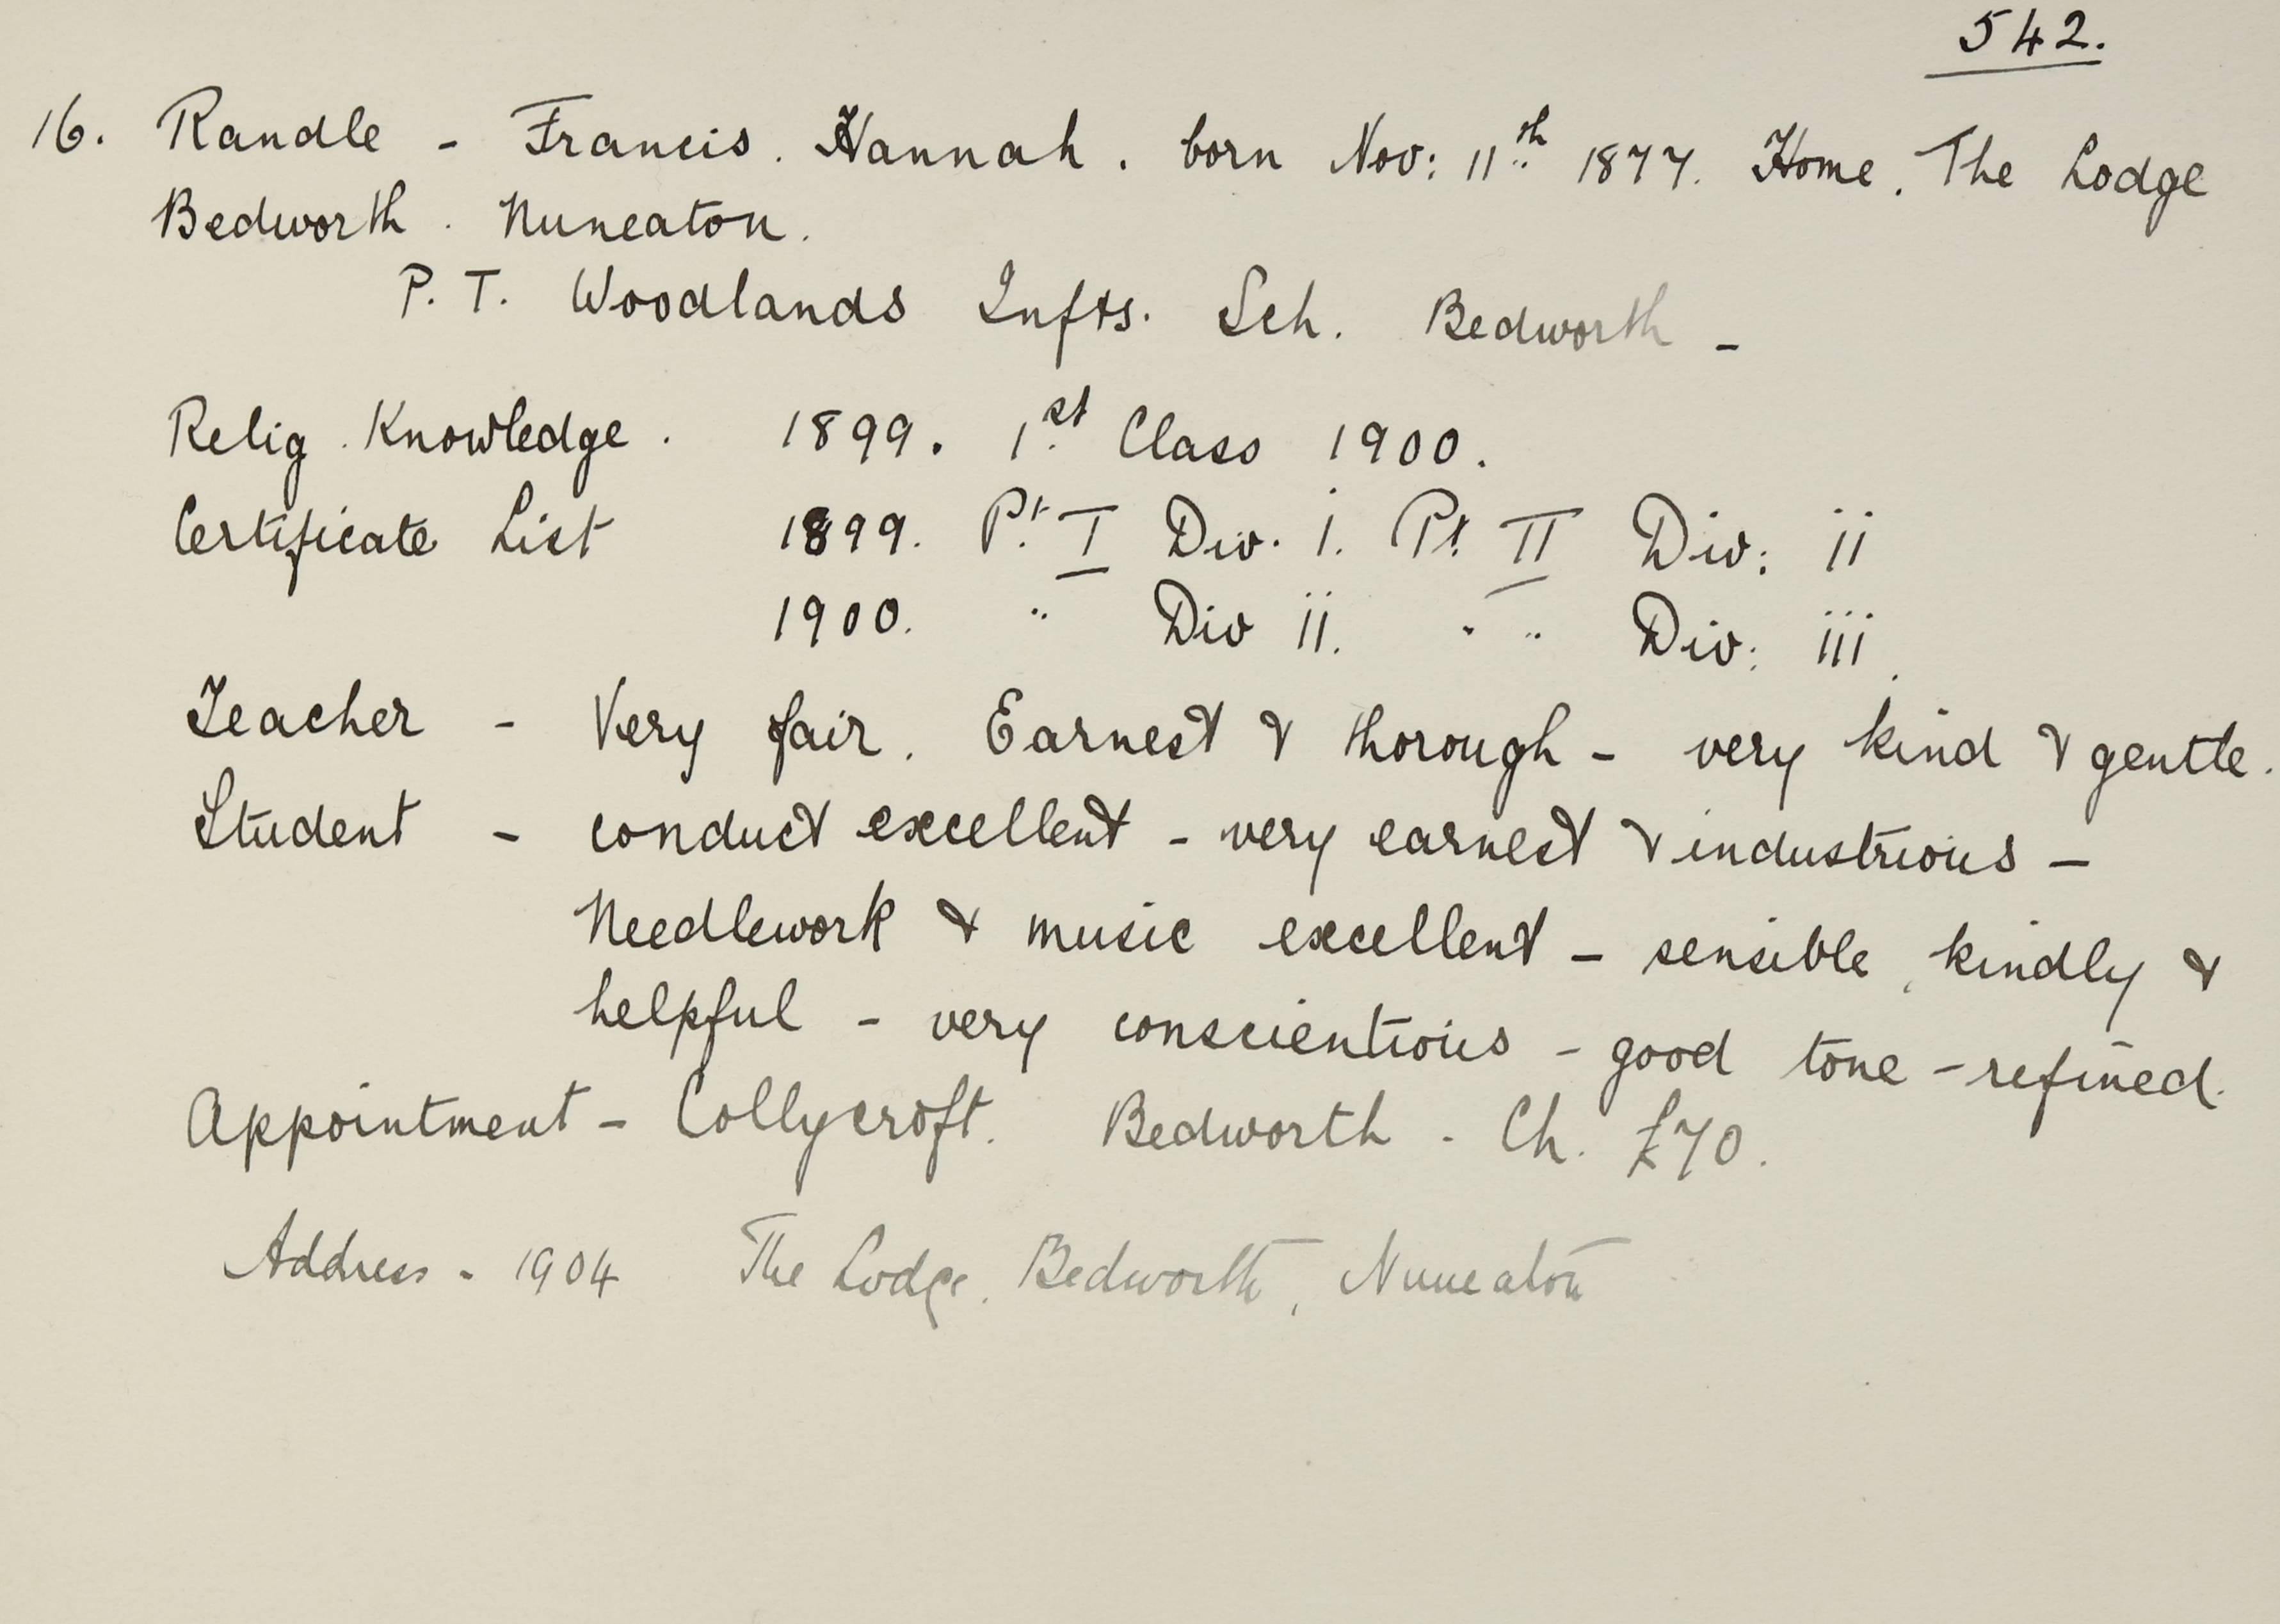 542.
16. Randle - Francis. Hannah. born Nov: 11th 1877. Home. The Lodge
Bedworth. Nuneaton.
P. T. Woodlands Infts. Sch. Bedworth -
Relig. Knowledge. 1899. 1st Class 1900.
Certificate List 1899. Pt I Div. i. Pt. II Div: ii
1900. " Div ii. " " Div: iii.
Teacher - Very fair. Earnest & thorough - very kind & gentle.
Student - conduct excellent - very earnest & industrious -
Needlework & music excellent - sensible, kindly &
helpful - very conscientious - good tone - refined.
Appointment - Collycroft. Bedworth. Ch. £70.
Address - 1904 The Lodge. Bedworth, Nuneaton